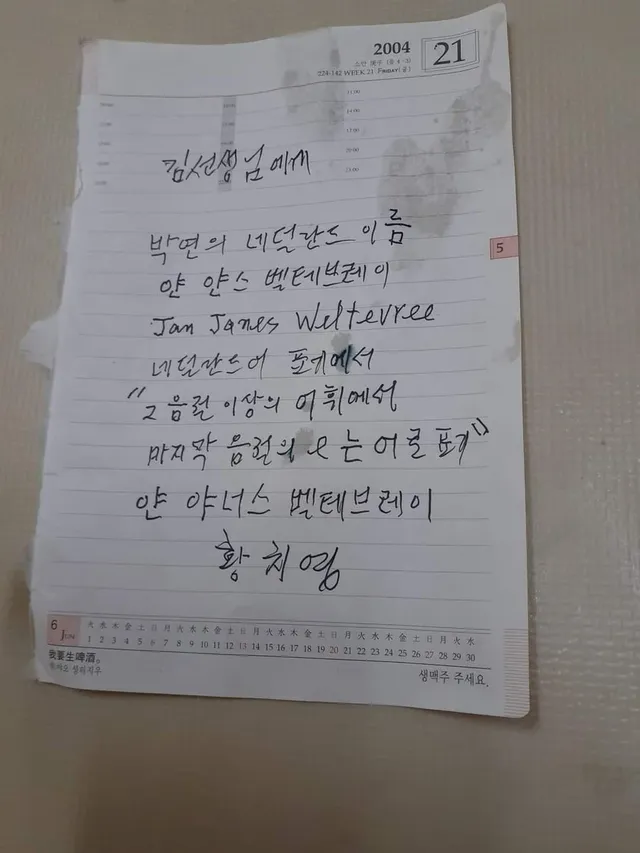 2004 21
소만 庚子 (음 4·3)
224-142 WEEK 21 FRIDAY(금)
김선생님에게
박연의 네덜란드 이름
얀 얀스 벨테브레이
Jan Janes Weltevree
네덜란드어 표기에서
"2음절 이상의 어휘에서
마지막 음절의 e는 어로 표기"
얀 야너스 벨테브레이
황치영
5
6 JUN 火 水 木 金 土 日 月 火 水 木 金 土 日 月 火 水 木 金 土 日 月 火 水 木 金 土 日 月 火 水
1 2 3 4 5 6 7 8 9 10 11 12 13 14 15 16 17 18 19 20 21 22 23 24 25 26 27 28 29 30
我要生啤酒。
워야오 셩피지우
생맥주 주세요.